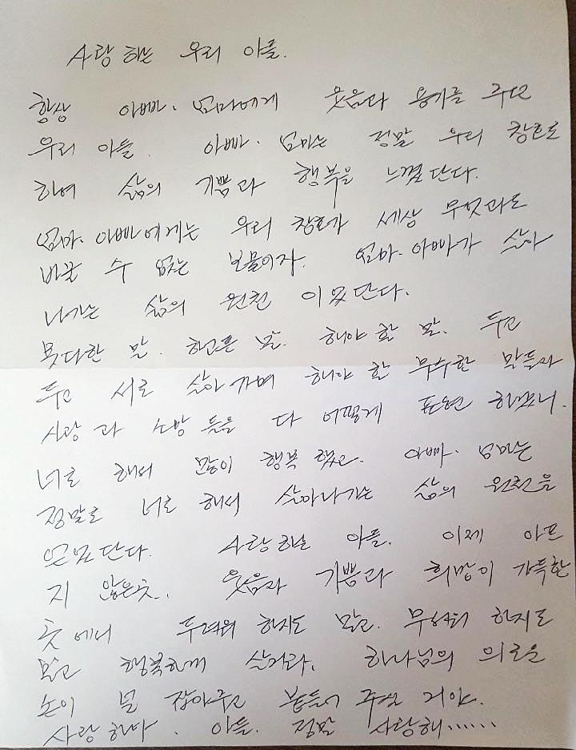 사랑하는 우리 아들.
항상 아빠. 엄마에게 웃음과 용기를 주던
우리 아들. 아빠. 엄마는 정말 우리 창호로
하여 삶의 기쁨과 행복을 느꼈단다.
엄마. 아빠에게는 우리 창호가 세상 무엇과도
바꿀 수 없는 보물이자. 엄마. 아빠가 살아
나가는 삶의 원천 이였단다.
못다한 말. 하고픈 말. 해야 할 말. 두고
두고 서로 살아가며 해야 할 무수한 말들과
사랑과 소망 들을 다 어떻게 표현 하겠니.
너로 해서 많이 행복 했고. 아빠. 엄마는
정말로 너로 해서 살아나가는 삶의 원천을
얻었단다. 사랑하는 아들. 이제 아프
지 않은곳. 웃음과 기쁨과 희망이 가득한
곳에서 두려워 하지도 말고. 무서워 하지도
말고 행복하게 살거라. 하나님의 의로운
손이 널 잡아주고 붙들어 주실 거야.
사랑한다. 아들. 정말 사랑해......